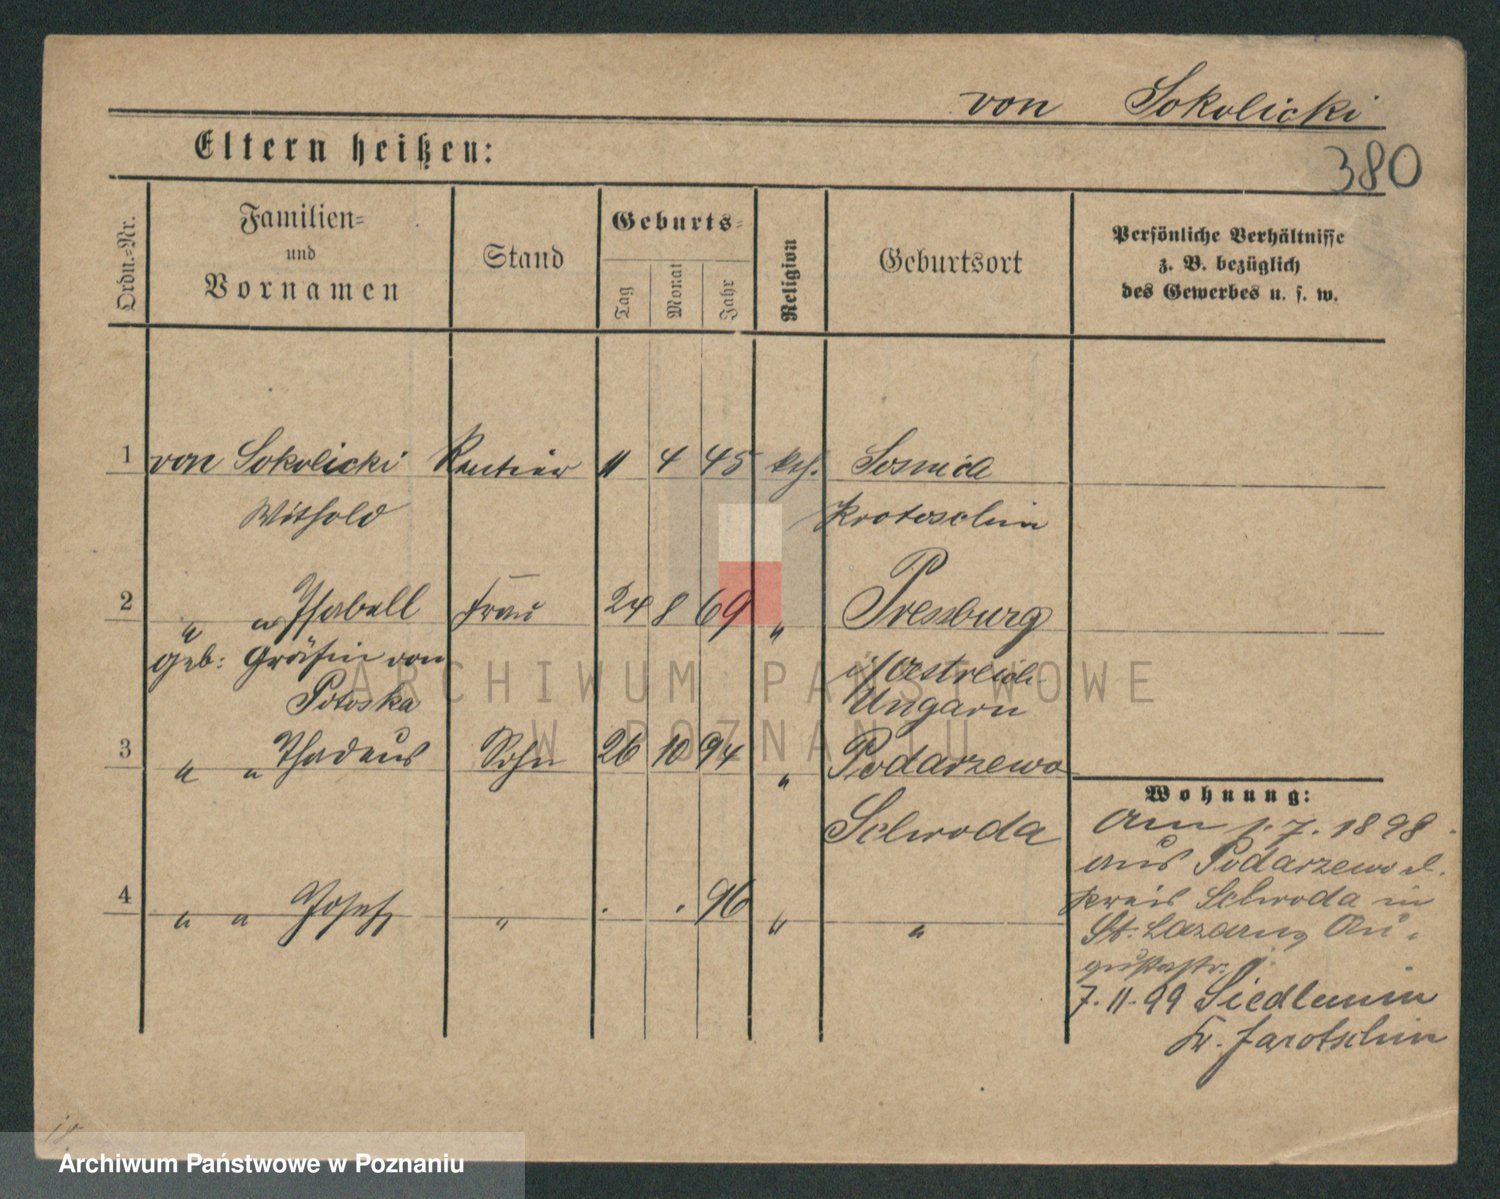 von Sokolicki
Eltern heißen:
380
Ordn.=Nr.
Familien=
und
Vornamen
Stand
Geburts=
Tag
Monat
Jahr
Religion
Geburtsort
Persönliche Verhältnisse
z. B. bezüglich
des Gewerbes u. s. w.
1 von Sokolicki Rentier 11 4 45 kth.
Withold Krotoschin
2 " " Isabell Frau 24 8 69 " Pressburg
geb: Gräfin von i/Oestreich
Potoska Ungarn
3 " " Thadeus Sohn 26 10 94 " Podarzewo
Schroda
4 " " Josef " . . 96 " "
Wohnung:
Am 1.7.1898
aus Podarzewo
Kreis Schroda in
St. Lazarus, Au-
gustastr.
7.11.99 Siedlemin
Kr. Jarotschin
ARCHIWUM PAŃSTWOWE
W POZNANIU
Archiwum Państwowe w Poznaniu